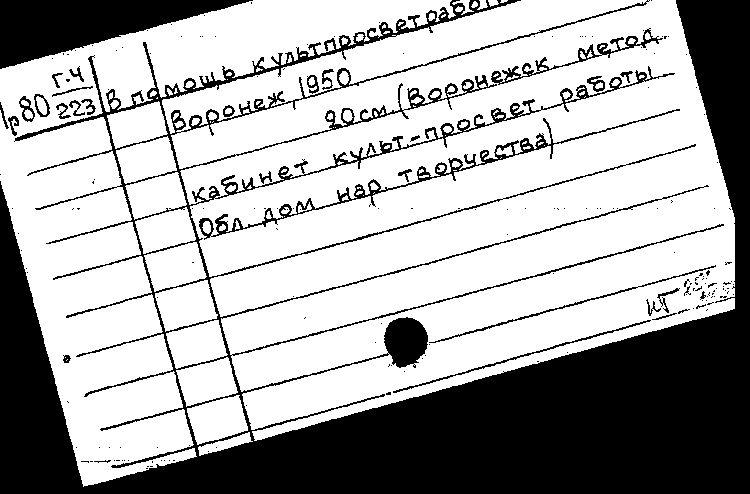 Гр80 Г.4/223
В помощь культпросветработ
Воронеж, 1950.
20см (Воронежск. метод.
кабинет культ.-просвет. работы
Обл. дом нар. творчества)
ИГ